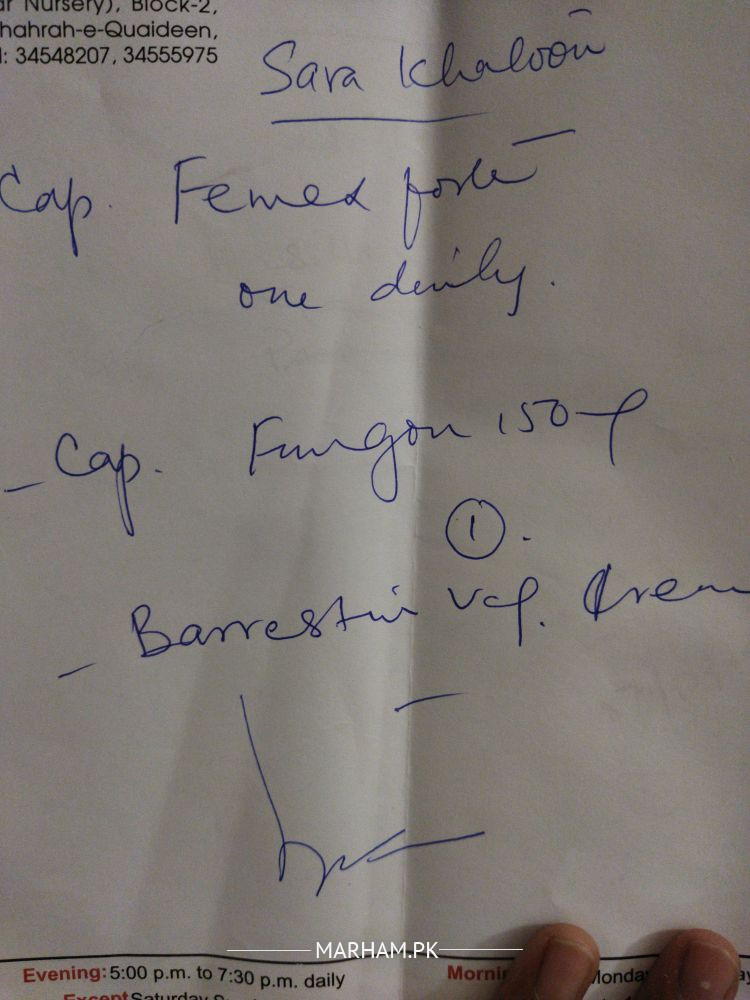 ar Nursery), Block-2,
hahrah-e-Quaideen,
l: 34548207, 34555975
Sara Khatoon
Cap. Femex forte
one daily.
- Cap. Fungon 150
①.
- Barrestin Vag. Cream
MARHAM.PK
Evening: 5:00 p.m. to 7:30 p.m. daily
Morni Monda ay
Except Saturday